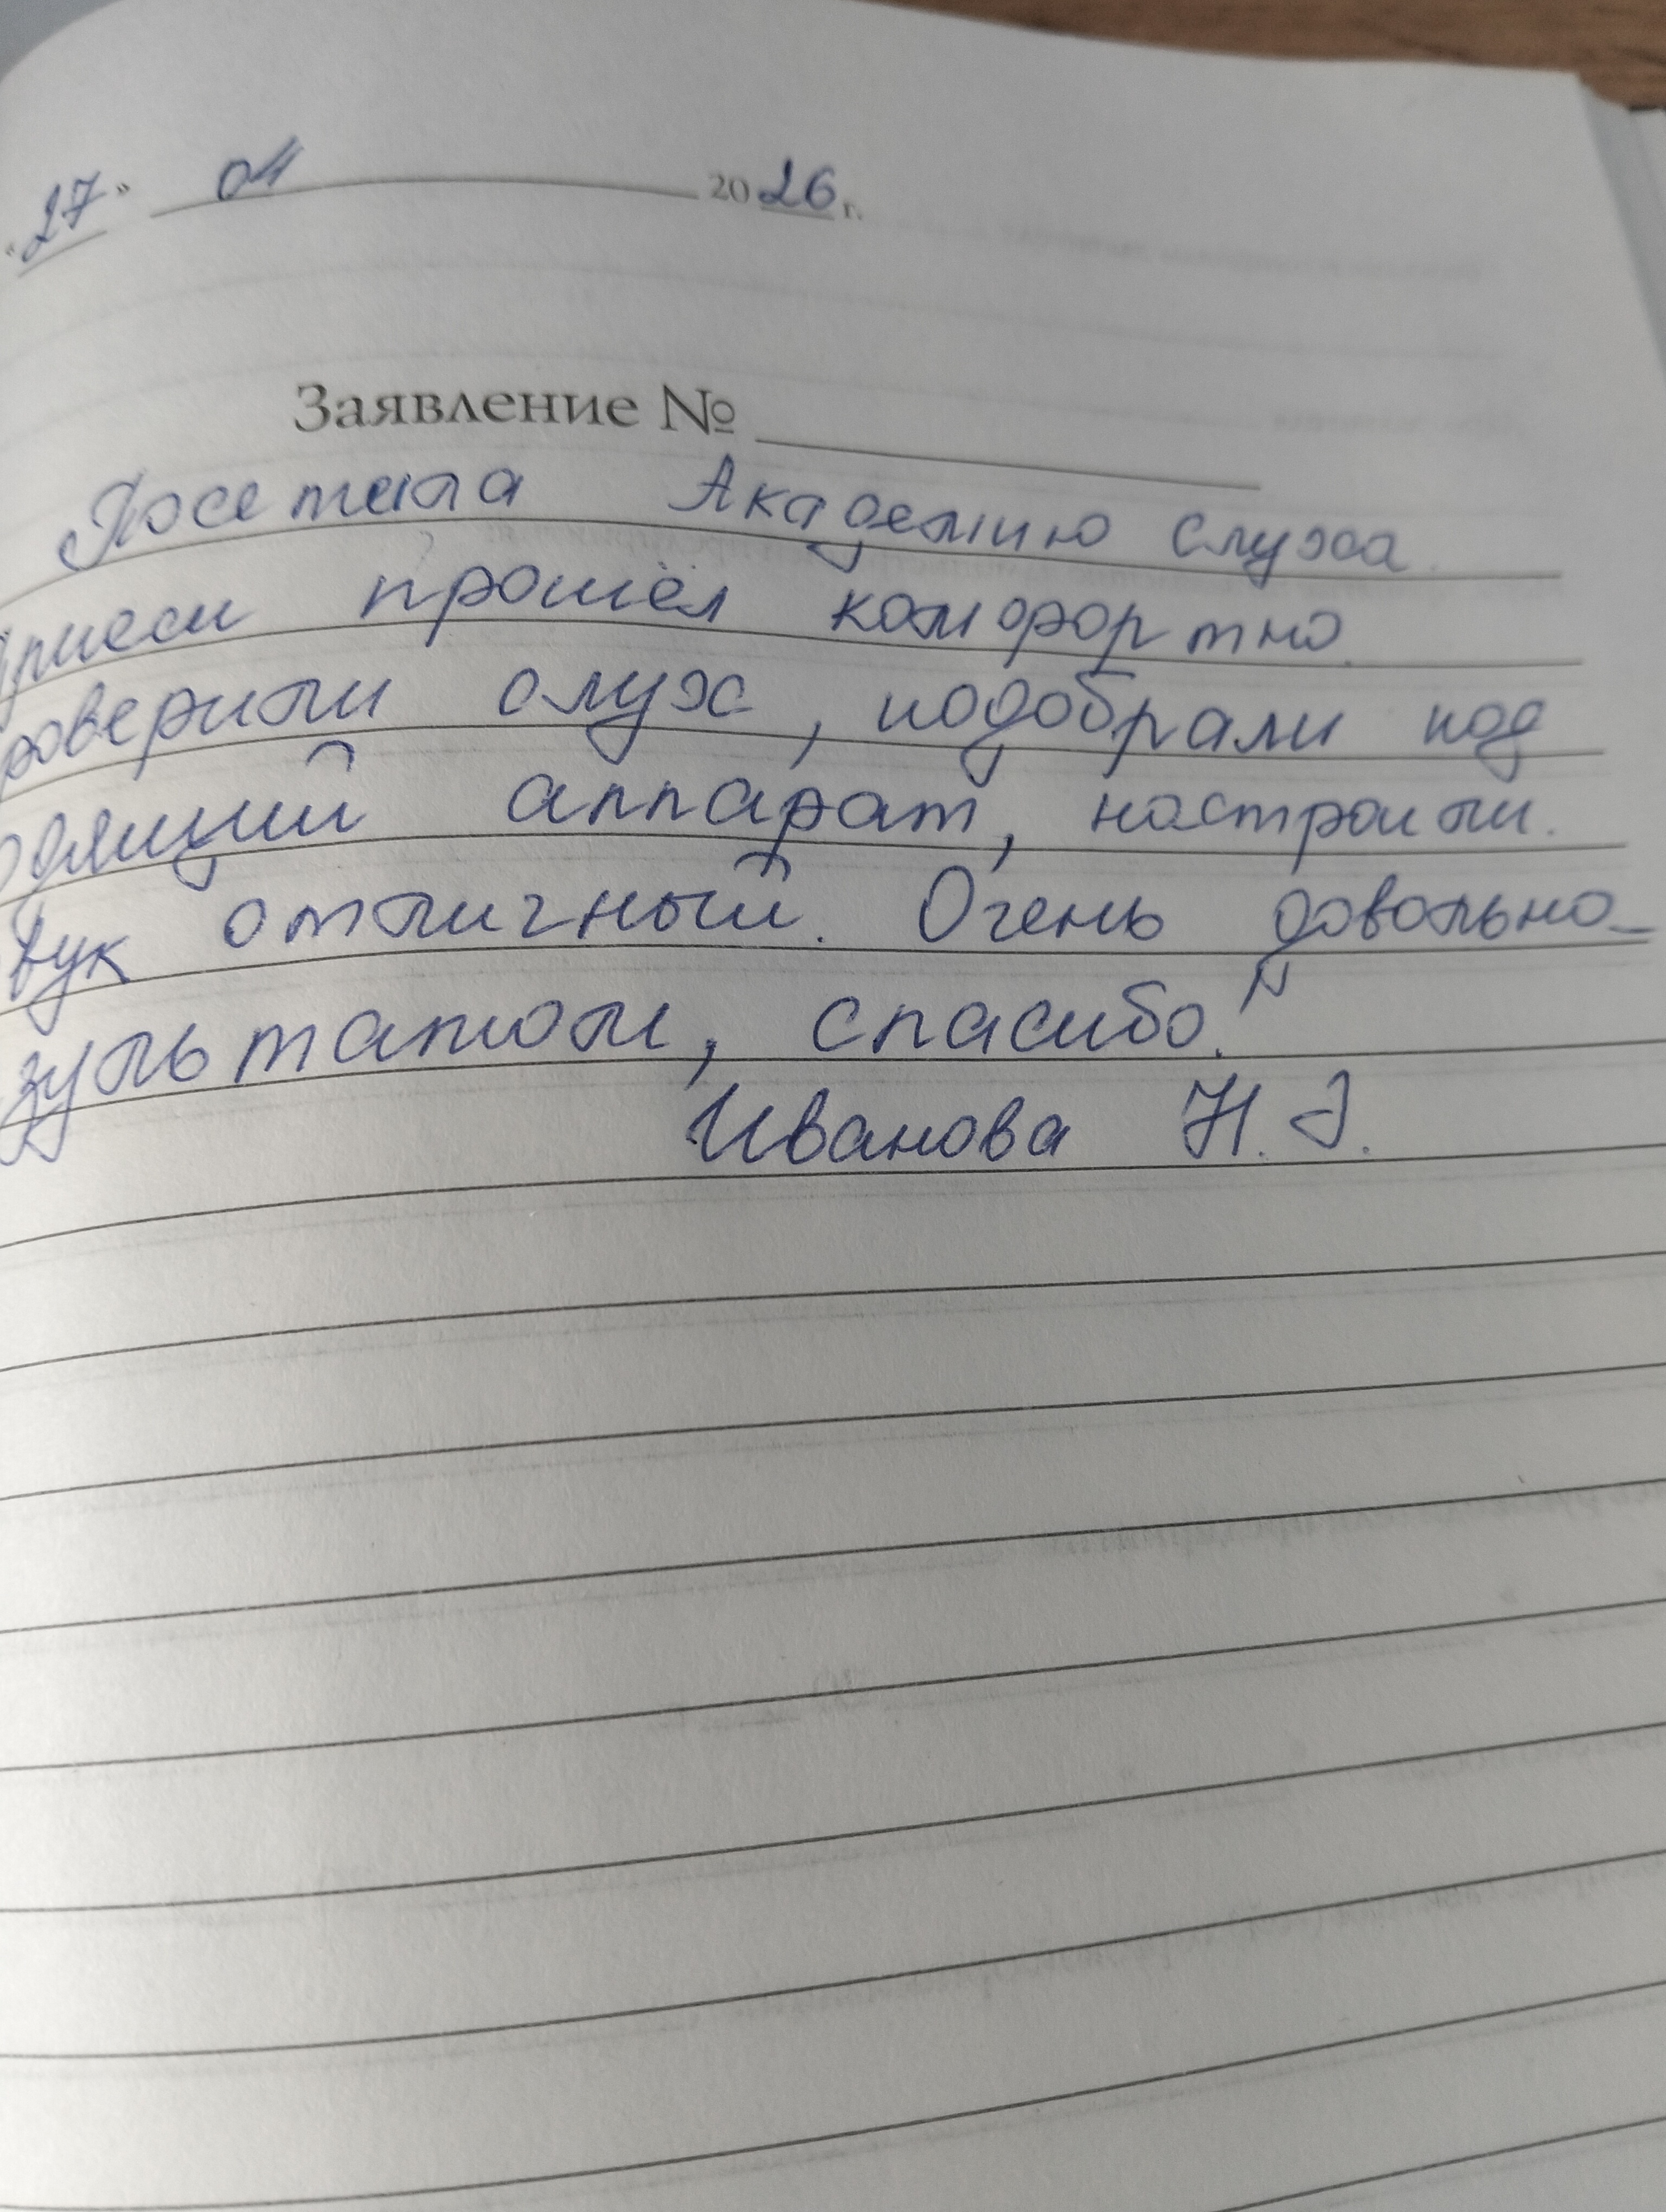 "27" 04 2026 г.
Заявление №
Посетила Академию слуха.
Прием прошёл комфортно.
роверили слух, подобрали под
одящий аппарат, настроили.
вук отличный. Очень довольно
зультатом, спасибо!
Иванова Н. Э.